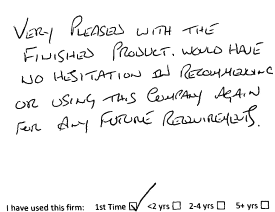 VERY PLEASED WITH THE
FINISHED PRODUCT. WOULD HAVE
NO HESITATION IN RECOMMENDING
OR USING THIS COMPANY AGAIN
FOR ANY FUTURE REQUIREMENTS.
I have used this firm: 1st Time ☑ <2 yrs ☐ 2-4 yrs ☐ 5+ yrs ☐